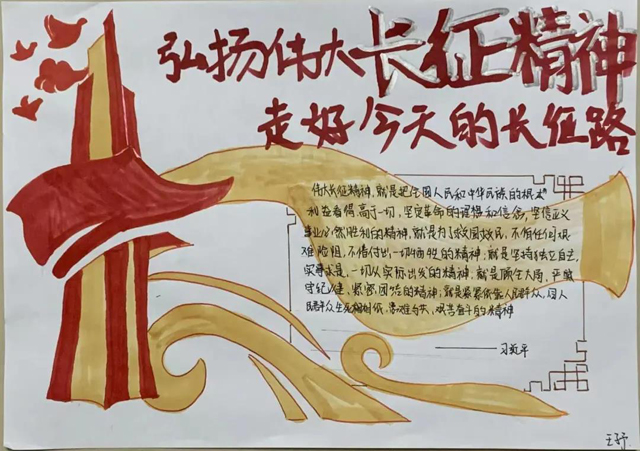 弘扬伟大长征精神
走好今天的长征路
伟大长征精神,就是把全国人民和中华民族的根本
利益看得高于一切,坚定革命的理想和信念,坚信正义
事业必然胜利的精神,就是为了救国救民,不怕任何艰
难险阻,不惜付出一切牺牲的精神;就是坚持独立自主,
实事求是,一切从实际出发的精神,就是顾全大局、严
守纪律、紧密团结的精神,就是紧紧依靠人民群众,同人
民群众生死相依、患难与共、艰苦奋斗的精神
——习近平